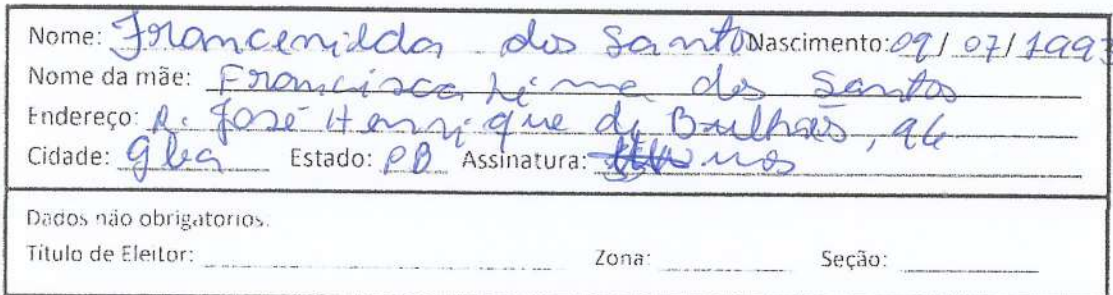 Nome: Francenilda dos Santos Nascimento: 09/07/1993
Nome da mãe: Francisca Lima dos Santos
Endereço: R. José Henrique de Bulhões, 96
Cidade: Gba Estado: PB Assinatura:
Dados não obrigatorios.
Título de Eleitor: Zona: Seção: